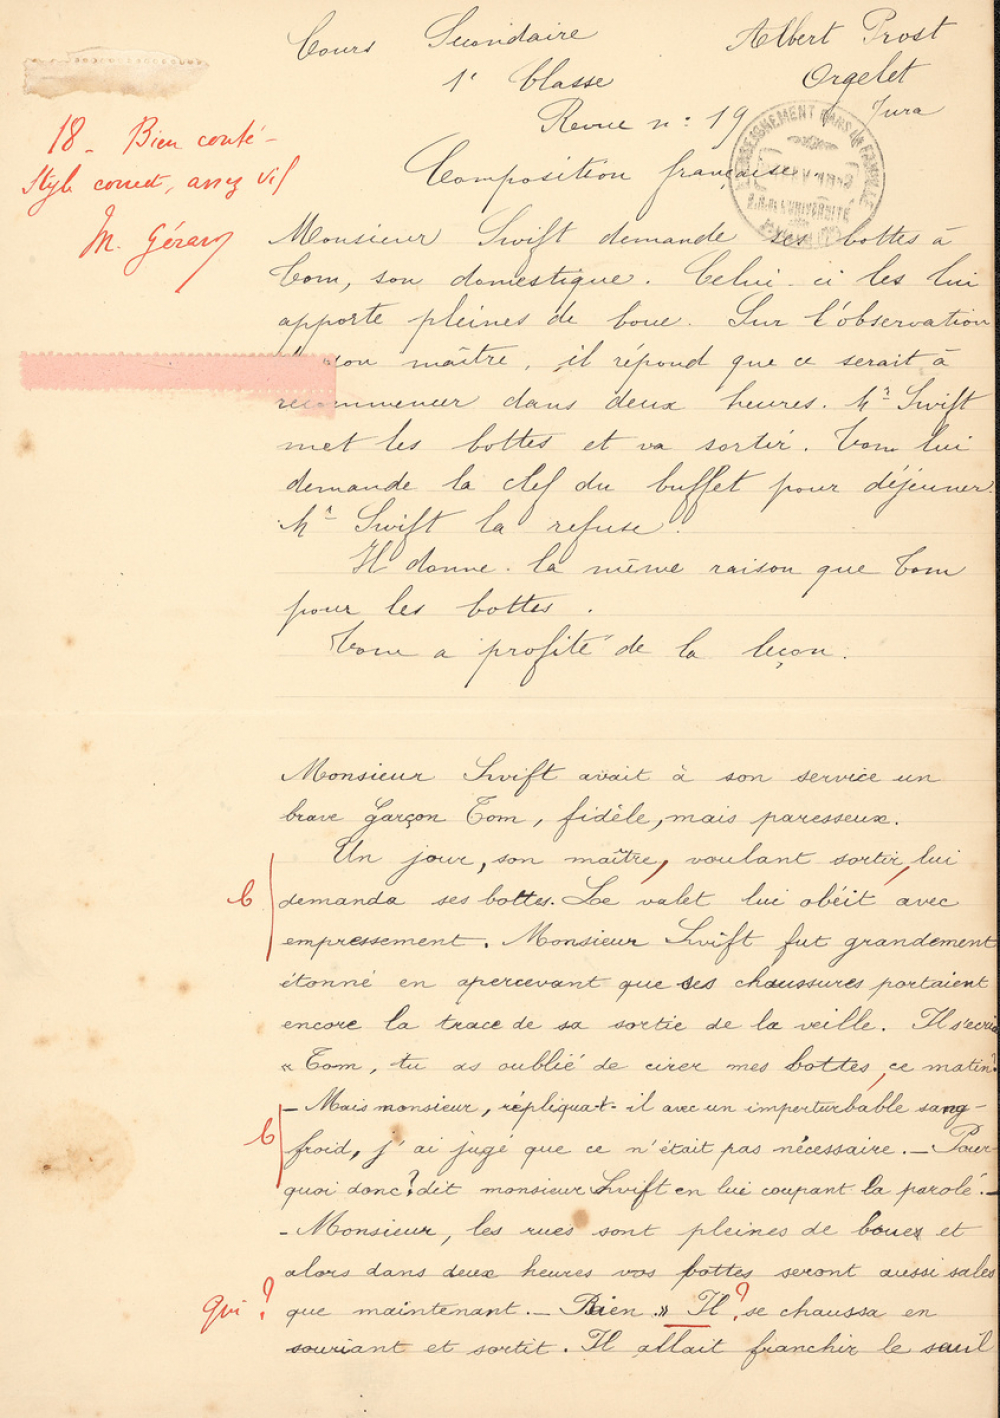 Cours Secondaire Albert Prost
1e Classe Orgelet
Revue n: 19 Jura
18 - Bien conté -
Style correct, assez vif
M. Gérard
Composition française.
ENSEIGNEMENT DANS LA FAMILLE
L'UNIVERSITÉ
Monsieur Swift demande ses bottes à
Tom, son domestique. Celui-ci les lui
apporte pleines de boue. Sur l'observation
son maître, il répond que ce serait à
recommencer dans deux heures. Mr Swift
met les bottes et va sortir. Tom lui
demande la clef du buffet pour déjeuner.
Mr Swift la refuse.
Il donne la même raison que Tom
pour les bottes.
Tom a profité de la leçon.
Monsieur Swift avait à son service un
brave garçon Tom, fidèle, mais paresseux.
Un jour, son maître, voulant sortir, lui
b demanda ses bottes. Le valet lui obéit avec
empressement. Monsieur Swift fut grandement
étonné en apercevant que ses chaussures portaient
encore la trace de sa sortie de la veille. Il s'écria
« Tom, tu as oublié de cirer mes bottes, ce matin?
- Mais monsieur, répliqua-t-il avec un imperturbable sang-
b froid, j'ai jugé que ce n'était pas nécessaire. - Pour-
quoi donc? dit monsieur Swift en lui coupant la parole. -
- Monsieur, les rues sont pleines de boue et
alors dans deux heures vos bottes seront aussi sales
Qui? que maintenant. - Bien » Il ? se chaussa en
souriant et sortit. Il allait franchir le seuil